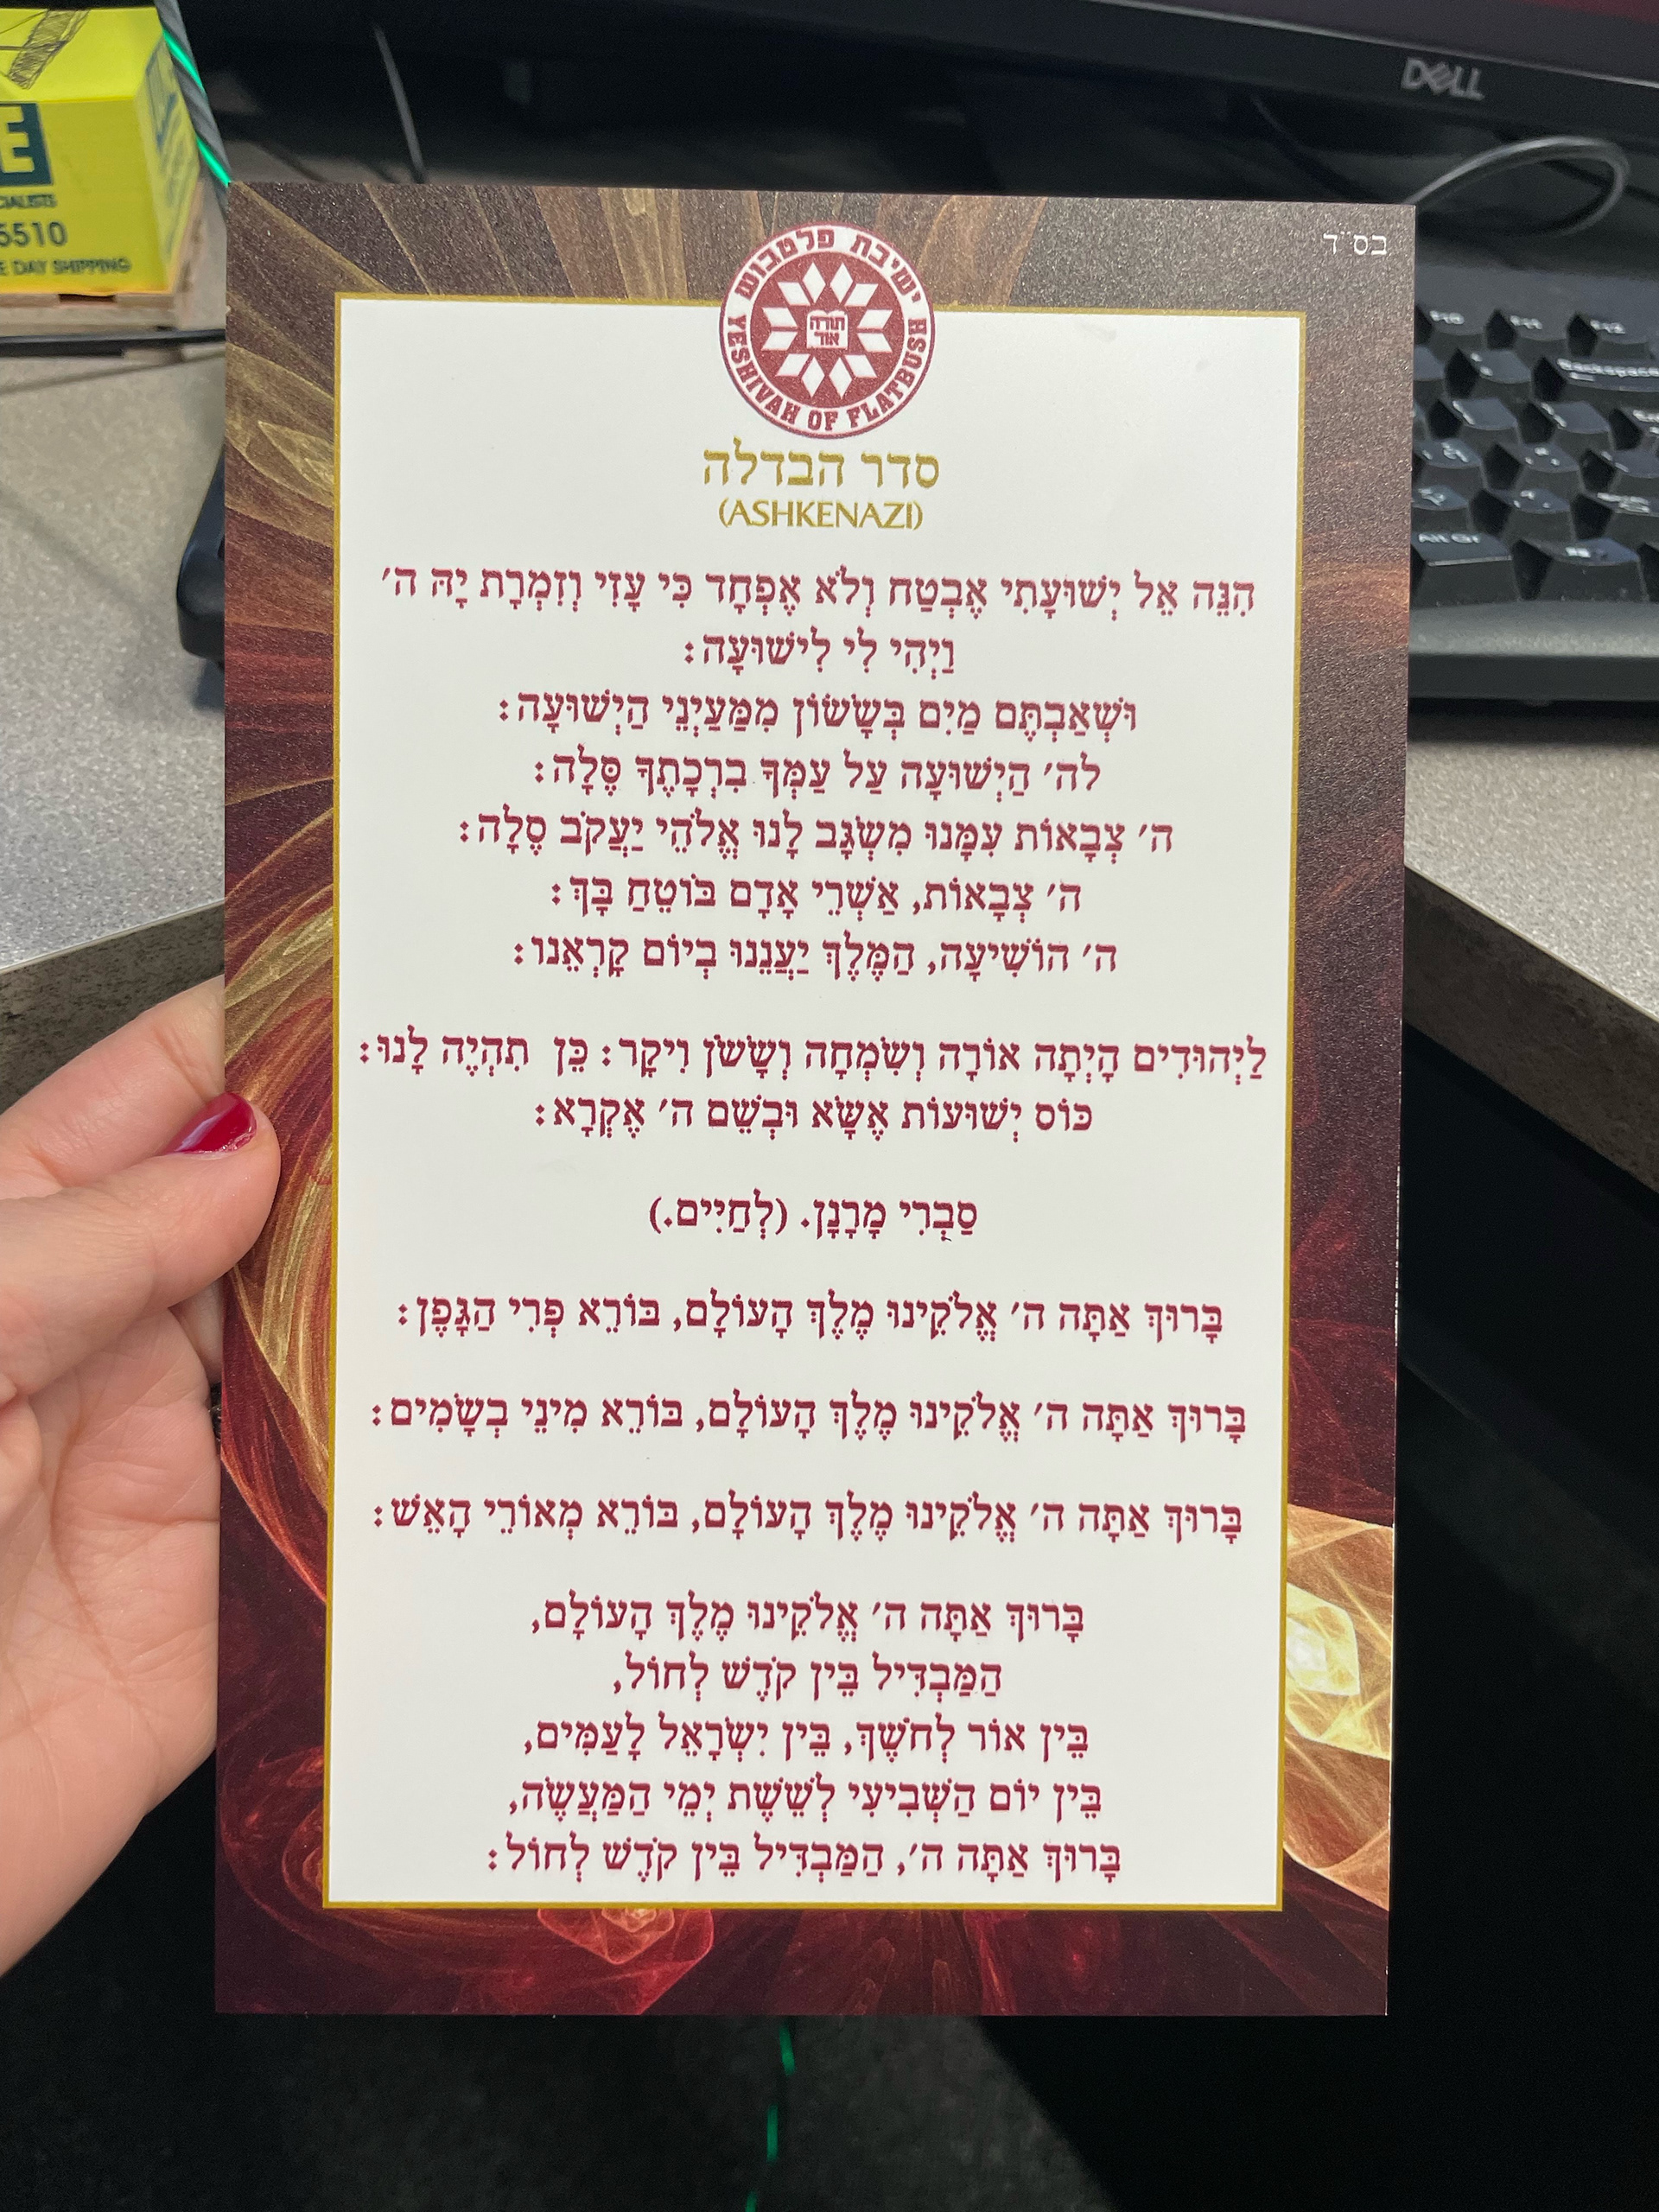 DELL
E
CIALISTS
5510
E DAY SHIPPING
F10 F11 F12
Backspace
Alt Gr
בס"ד
ישיבת פלטבוש
תורה
אור
YESHIVAH OF FLATBUSH
סדר הבדלה
(ASHKENAZI)
הִנֵּה אֵל יְשׁוּעָתִי אֶבְטַח וְלֹא אֶפְחָד כִּי עָזִּי וְזִמְרָת יָהּ ה׳
וַיְהִי לִי לִישׁוּעָה:
וּשְׁאַבְתֶּם מַיִם בְּשָׂשׂוֹן מִמַּעַיְנֵי הַיְשׁוּעָה:
לה׳ הַיְשׁוּעָה עַל עַמְּךָ בִרְכָתֶךָ סֶּלָה:
ה׳ צְבָאוֹת עִמָּנוּ מִשְׂגָּב לָנוּ אֱלֹהֵי יַעֲקֹב סֶלָה:
ה׳ צְבָאוֹת, אַשְׁרֵי אָדָם בּוֹטֵחַ בָּךְ:
ה׳ הוֹשִׁיעָה, הַמֶּלֶךְ יַעֲנֵנוּ בְיוֹם קָרְאֵנוּ:
לַיְהוּדִים הָיְתָה אוֹרָה וְשִׂמְחָה וְשָׂשֹׂן וִיקָר: כֵּן תִהְיֶה לָנוּ:
כּוֹס יְשׁוּעוֹת אֶשָּׂא וּבְשֵׁם ה׳ אֶקְרָא:
סַבְרִי מָרָנָן. (לְחַיִּים.)
בָּרוּךְ אַתָּה ה׳ אֱלֹקֵינוּ מֶלֶךְ הָעוֹלָם, בּוֹרֵא פְּרִי הַגָּפֶן:
בָּרוּךְ אַתָּה ה׳ אֱלֹקֵינוּ מֶלֶךְ הָעוֹלָם, בּוֹרֵא מִינֵי בְשָׂמִים:
בָּרוּךְ אַתָּה ה׳ אֱלֹקֵינוּ מֶלֶךְ הָעוֹלָם, בּוֹרֵא מְאוֹרֵי הָאֵשׁ:
בָּרוּךְ אַתָּה ה׳ אֱלֹקֵינוּ מֶלֶךְ הָעוֹלָם,
הַמַּבְדִּיל בֵּין קֹדֶשׁ לְחוֹל,
בֵּין אוֹר לְחֹשֶׁךְ, בֵּין יִשְׂרָאֵל לָעַמִּים,
בֵּין יוֹם הַשְּׁבִיעִי לְשֵׁשֶׁת יְמֵי הַמַּעֲשֶׂה,
בָּרוּךְ אַתָּה ה׳, הַמַּבְדִּיל בֵּין קֹדֶשׁ לְחוֹל: